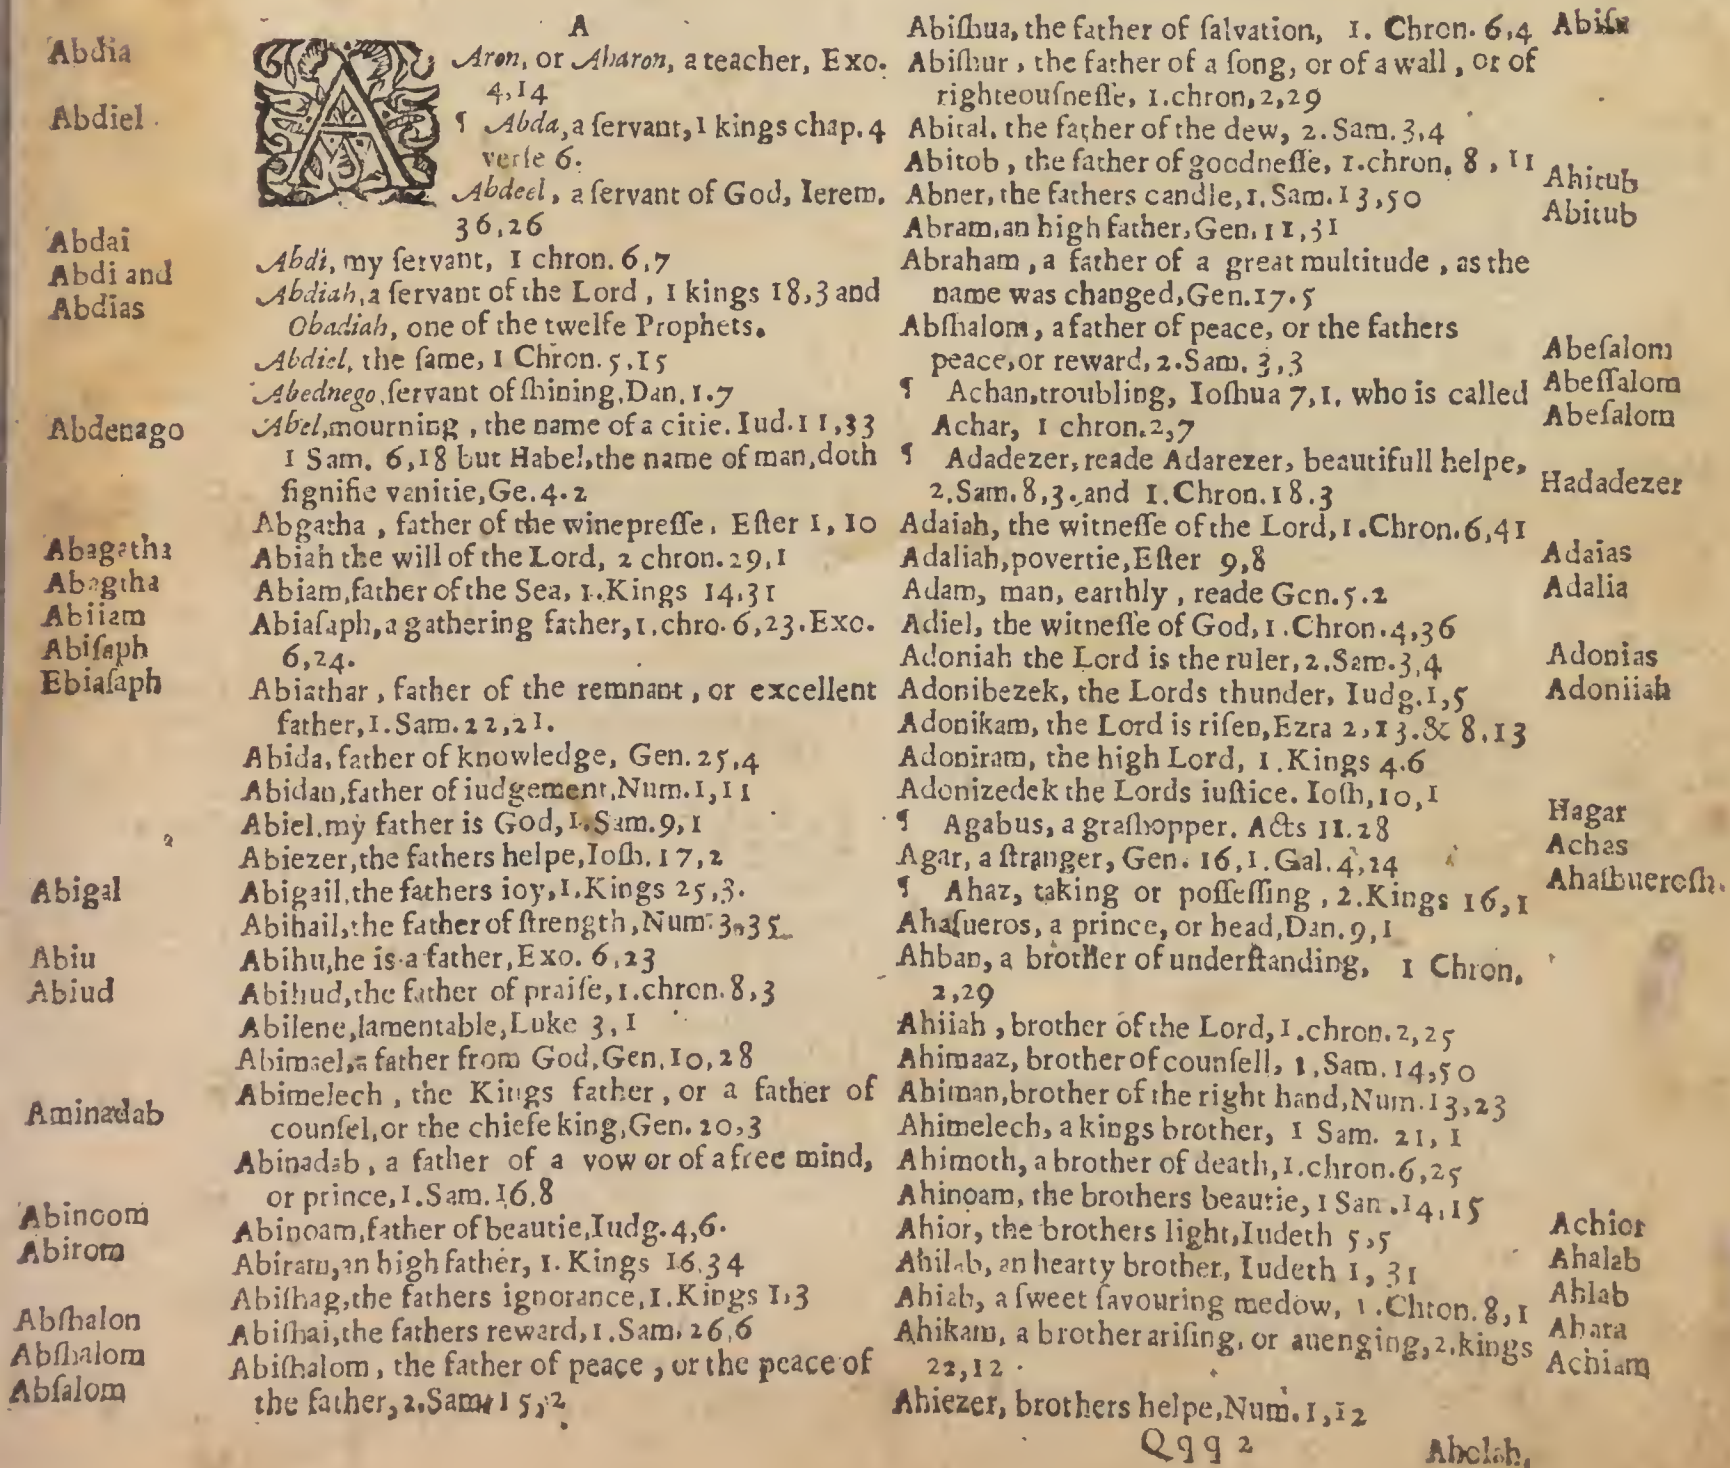 A
Aron, or Aharon, a teacher, Exo.
4,14
¶ Abda, a ſervant, 1 kings chap. 4
verſe 6.
Abdeel, a ſervant of God, Ierem.
36,26
Abdi, my ſervant, 1 chron. 6,7
Abdiah, a ſervant of the Lord, 1 kings 18,3 and
Obadiah, one of the twelfe Prophets.
Abdiel, the ſame, 1 Chron. 5.15
Abednego, ſervant of ſhining, Dan. 1.7
Abel, mourning, the name of a citie. Iud. 11,33
1 Sam. 6,18 but Habel, the name of man, doth
ſignifie vanitie, Ge. 4.2
Abgatha, father of the winepreſſe, Eſter 1, 10
Abiah the will of the Lord, 2 chron. 29,1
Abiam, father of the Sea, 1. Kings 14.31
Abiaſaph, a gathering father, 1. chro. 6,23. Exo.
6,24.
Abiathar, father of the remnant, or excellent
father, 1. Sam. 22,21.
Abida, father of knowledge, Gen. 25,4
Abidan, father of iudgement, Num. 1,11
Abiel, my father is God, 1. Sam. 9,1
Abiezer, the fathers helpe, Ioſh. 17,2
Abigail, the fathers ioy, 1. Kings 25,3.
Abihail, the father of ſtrength, Num. 3,35
Abihu, he is a father, Exo. 6,23
Abihud, the father of praiſe, 1. chron. 8,3
Abilene, lamentable, Luke 3, 1
Abimael, a father from God, Gen. 10, 28
Abimelech, the Kings father, or a father of
counſel, or the chiefe king, Gen. 20,3
Abinadab, a father of a vow or of a free mind,
or prince, 1. Sam. 16.8
Abinoam, father of beautie, Iudg. 4,6.
Abiram, an high father, 1. Kings 16.34
Abiſhag, the fathers ignorance, 1. Kings 1,3
Abiſhai, the fathers reward, 1. Sam. 26,6
Abiſhalom, the father of peace, or the peace of
the father, 2. Sam. 15,2
Abdia
Abdiel
Abdai
Abdi and
Abdias
Abdenago
Abagatha
Abagtha
Abiiam
Abiſaph
Ebiaſaph
Abigal
Abiu
Abiud
Aminadab
Abinoom
Abirom
Abſhalon
Abſhalom
Abſalom
Abiſhua, the father of ſalvation, 1. Chron. 6,4
Abiſhur, the father of a ſong, or of a wall, or of
righteouſneſſe, 1. chron, 2,29
Abital, the father of the dew, 2. Sam. 3,4
Abitob, the father of goodneſſe, 1. chron, 8, 11
Abner, the fathers candle, 1. Sam. 13,50
Abram, an high father, Gen. 11,31
Abraham, a father of a great multitude, as the
name was changed, Gen. 17.5
Abſhalom, a father of peace, or the fathers
peace, or reward, 2. Sam. 3,3
¶ Achan, troubling, Ioſhua 7,1, who is called
Achar, 1 chron. 2,7
¶ Adadezer, reade Adarezer, beautifull helpe,
2. Sam. 8,3. and 1. Chron. 18.3
Adaiah, the witneſſe of the Lord, 1. Chron. 6,41
Adaliah, povertie, Eſter 9,8
Adam, man, earthly, reade Gen. 5.2
Adiel, the witneſſe of God, 1. Chron. 4,36
Adoniah the Lord is the ruler, 2. Sam. 3,4
Adonibezek, the Lords thunder, Iudg. 1,5
Adonikam, the Lord is riſen, Ezra 2,13. & 8,13
Adoniram, the high Lord, 1. Kings 4.6
Adonizedek the Lords iuſtice. Ioſh, 10,1
¶ Agabus, a graſhopper. Acts 11.28
Agar, a ſtranger, Gen. 16,1. Gal. 4,24
¶ Ahaz, taking or poſſeſſing, 2. Kings 16,1
Ahaſueros, a prince, or head, Dan. 9,1
Ahban, a brother of underſtanding, 1 Chron.
2,29
Ahiiah, brother of the Lord, 1. chron. 2,25
Ahimaaz, brother of counſell, 1. Sam. 14,50
Ahiman, brother of the right hand, Num. 13,23
Ahimelech, a kings brother, 1 Sam. 21, 1
Ahimoth, a brother of death, 1. chron. 6,25
Ahinoam, the brothers beautie, 1 Sam. 14,15
Ahior, the brothers light, Iudeth 5,5
Ahilab, an hearty brother, Iudeth 1, 31
Ahiah, a ſweet ſavouring medow, 1. Chron. 8,1
Ahikam, a brother ariſing, or auenging, 2. kings
22,12
Ahiezer, brothers helpe, Num. 1,12
Qqq 2
Ahitub
Abitub
Abeſalom
Abeſſalom
Abeſalom
Hadadezer
Adaias
Adalia
Adonias
Adoniiah
Hagar
Achas
Ahaſhueroſh.
Achior
Ahalab
Ahlab
Ahara
Achiam